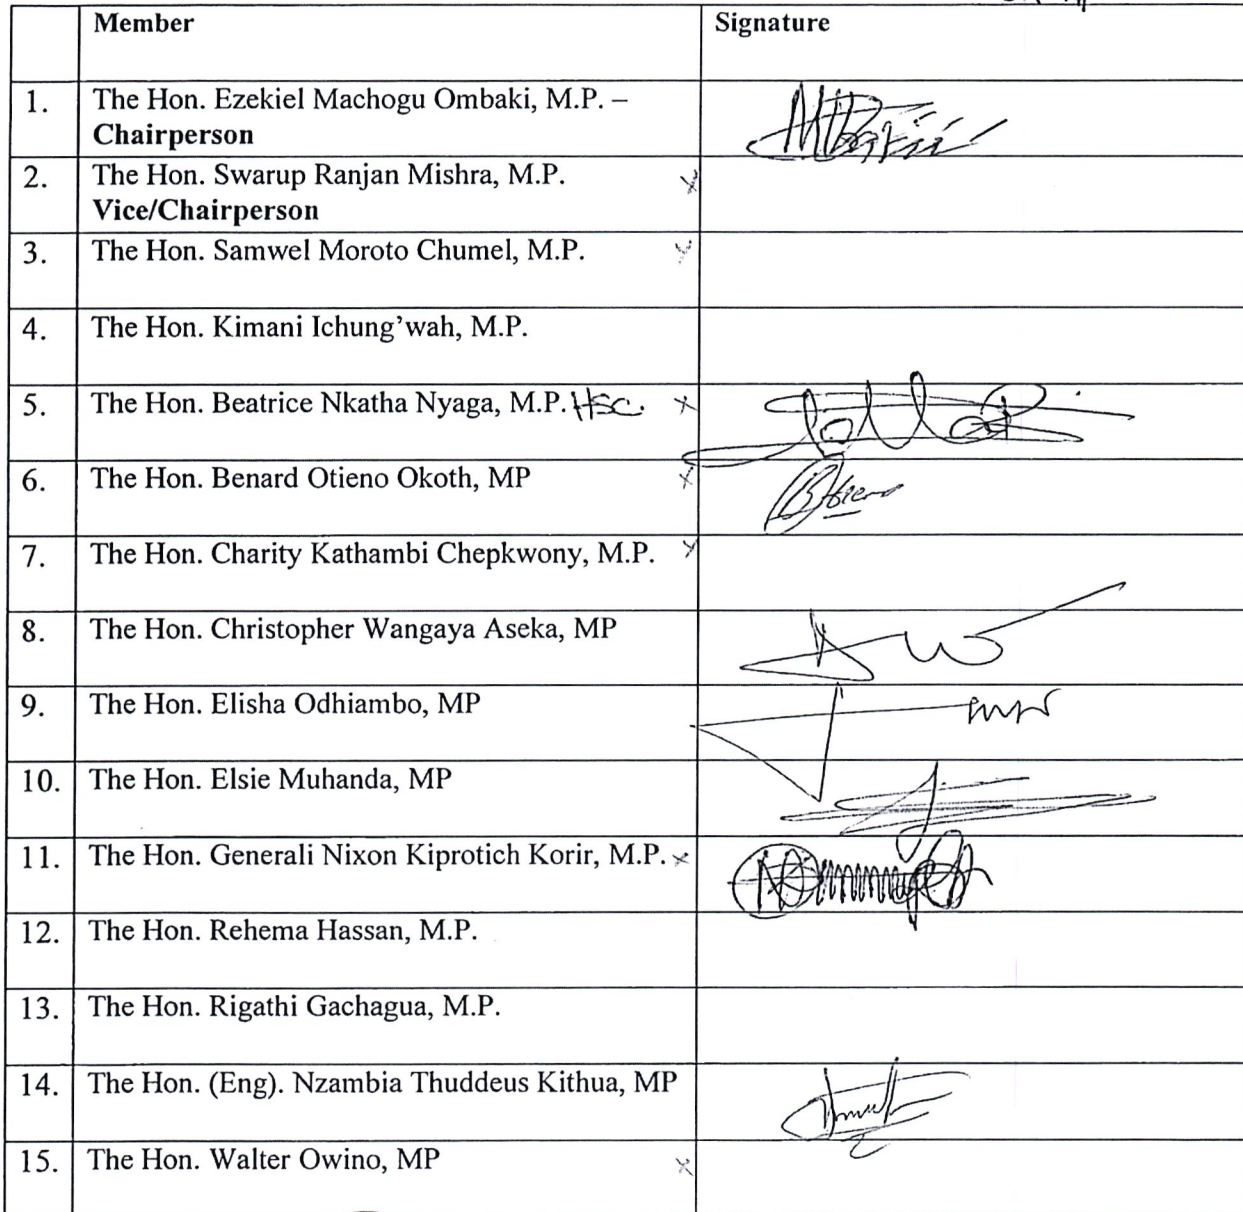 Member
Signature
1.
The Hon. Ezekiel Machogu Ombaki, M.P. –
Chairperson
2.
The Hon. Swarup Ranjan Mishra, M.P.
Vice/Chairperson
3.
The Hon. Samwel Moroto Chumel, M.P.
4.
The Hon. Kimani Ichung'wah, M.P.
5.
The Hon. Beatrice Nkatha Nyaga, M.P. HSC.
6.
The Hon. Benard Otieno Okoth, MP
7.
The Hon. Charity Kathambi Chepkwony, M.P.
8.
The Hon. Christopher Wangaya Aseka, MP
9.
The Hon. Elisha Odhiambo, MP
10.
The Hon. Elsie Muhanda, MP
11.
The Hon. Generali Nixon Kiprotich Korir, M.P.
12.
The Hon. Rehema Hassan, M.P.
13.
The Hon. Rigathi Gachagua, M.P.
14.
The Hon. (Eng). Nzambia Thuddeus Kithua, MP
15.
The Hon. Walter Owino, MP